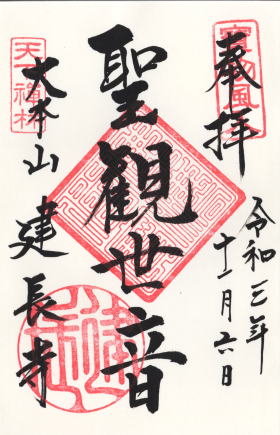 奉拝
令和三年
十一月六日
聖観世音
天下禅林
大本山
建長寺